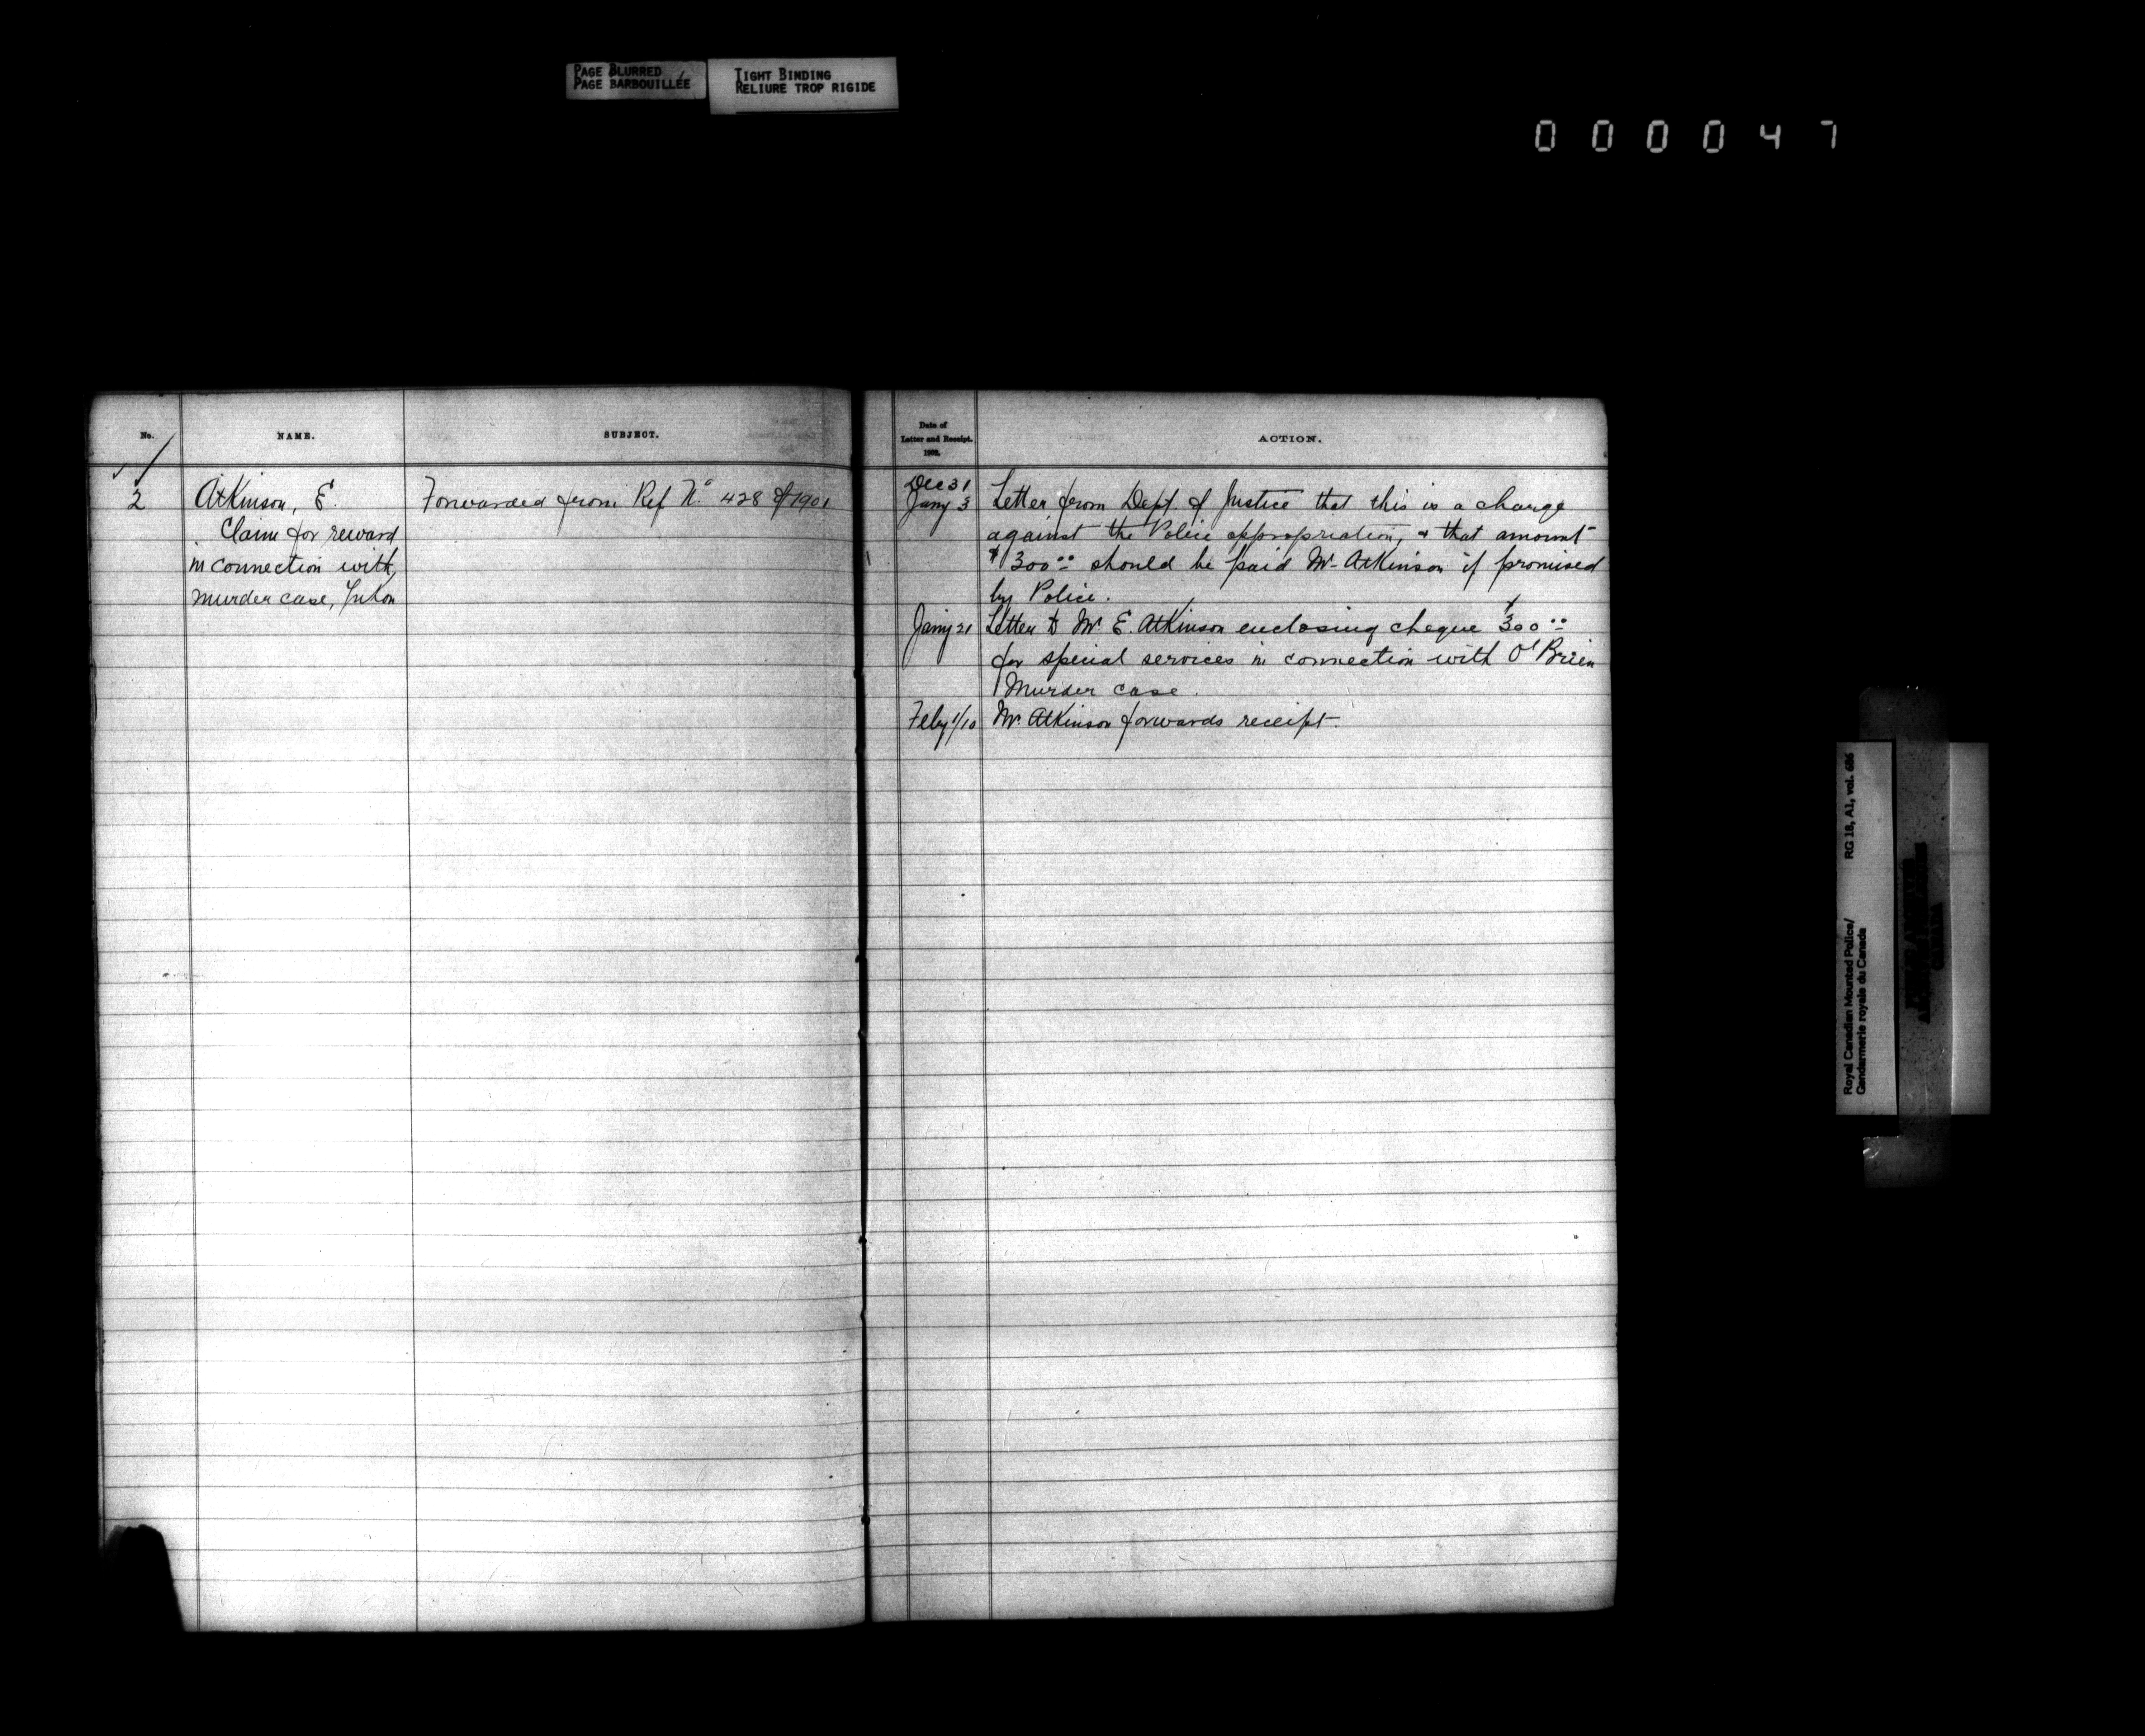 PAGE BLURRED
PAGE BARBOUILLÉE
TIGHT BINDING
RELIURE TROP RIGIDE
000047
No.
NAME.
SUBJECT.
2
Atkinson, E.
Claim for reward
in connection with
murder case, Yukon
Forwarded from Ref No. 428 of 1901
Date of
Letter and Receipt.
1902.
ACTION.
Dec 31
Jany 3 Letter from Dept. of Justice that this is a charge
against the Police appropriation, & that amount
$300.00 should be paid Mr. Atkinson if promised
by Police.
Jany 21 Letter to Mr. E. Atkinson enclosing cheque $300.00
for special services in connection with O'Brien
Murder case.
Feby 1/10 Mr. Atkinson forwards receipt.
Royal Canadian Mounted Police/ RG 18, A1, vol. 686
Gendarmerie royale du Canada